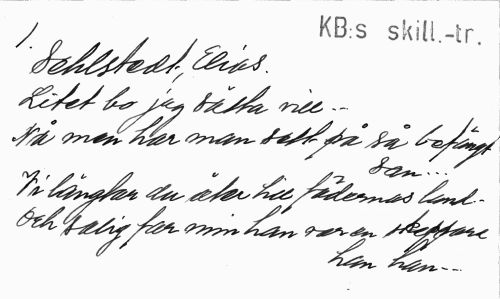 KB:s skill.-tr.
1.
Sehlstedt, Elias.
Litet bo jag sätta vill --
Nå men har man sett på så befängt
San...
Vi längtar du åter till fädernas land -
Och salig far min han var en skeppare
han han --